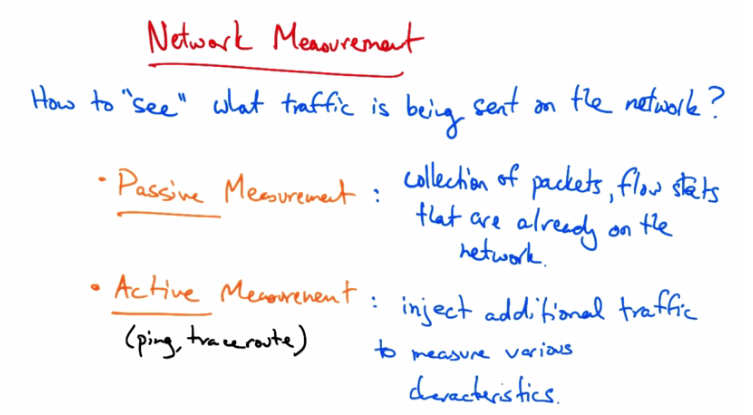 Network Measurement
How to "see" what traffic is being sent on the network?
• Passive Measurement : collection of packets, flow stats
that are already on the
network.
• Active Measurement : inject additional traffic
(ping, traceroute) to measure various
characteristics.